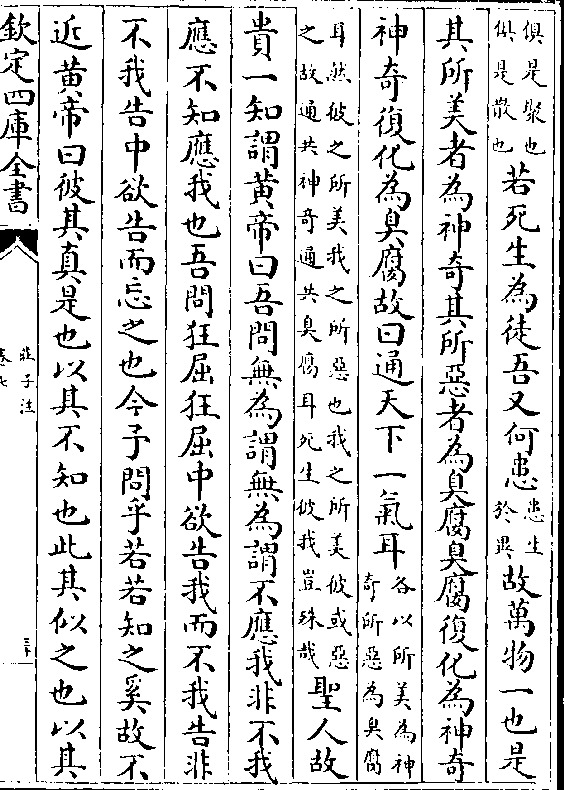 俱是聚也
俱是散也
若死生為徒吾又何患
患生
於異
故萬物一也是
其所美者為神奇其所惡者為臭腐臭腐復化為神奇
神奇復化為臭腐故曰通天下一氣耳
各以所美為神
奇所惡為臭腐
耳然彼之所美我之所惡也我之所美彼或惡
之故通共神奇通共臭腐耳死生彼我豈殊哉
聖人故
貴一知謂黃帝曰吾問無為謂無為謂不應我非不我
應不知應我也吾問狂屈狂屈中欲告我而不我告非
不我告中欲告而忘之也今予問乎若若知之奚故不
近黃帝曰彼其真是也以其不知也此其似之也以其
欽定四庫全書
莊子注
卷七